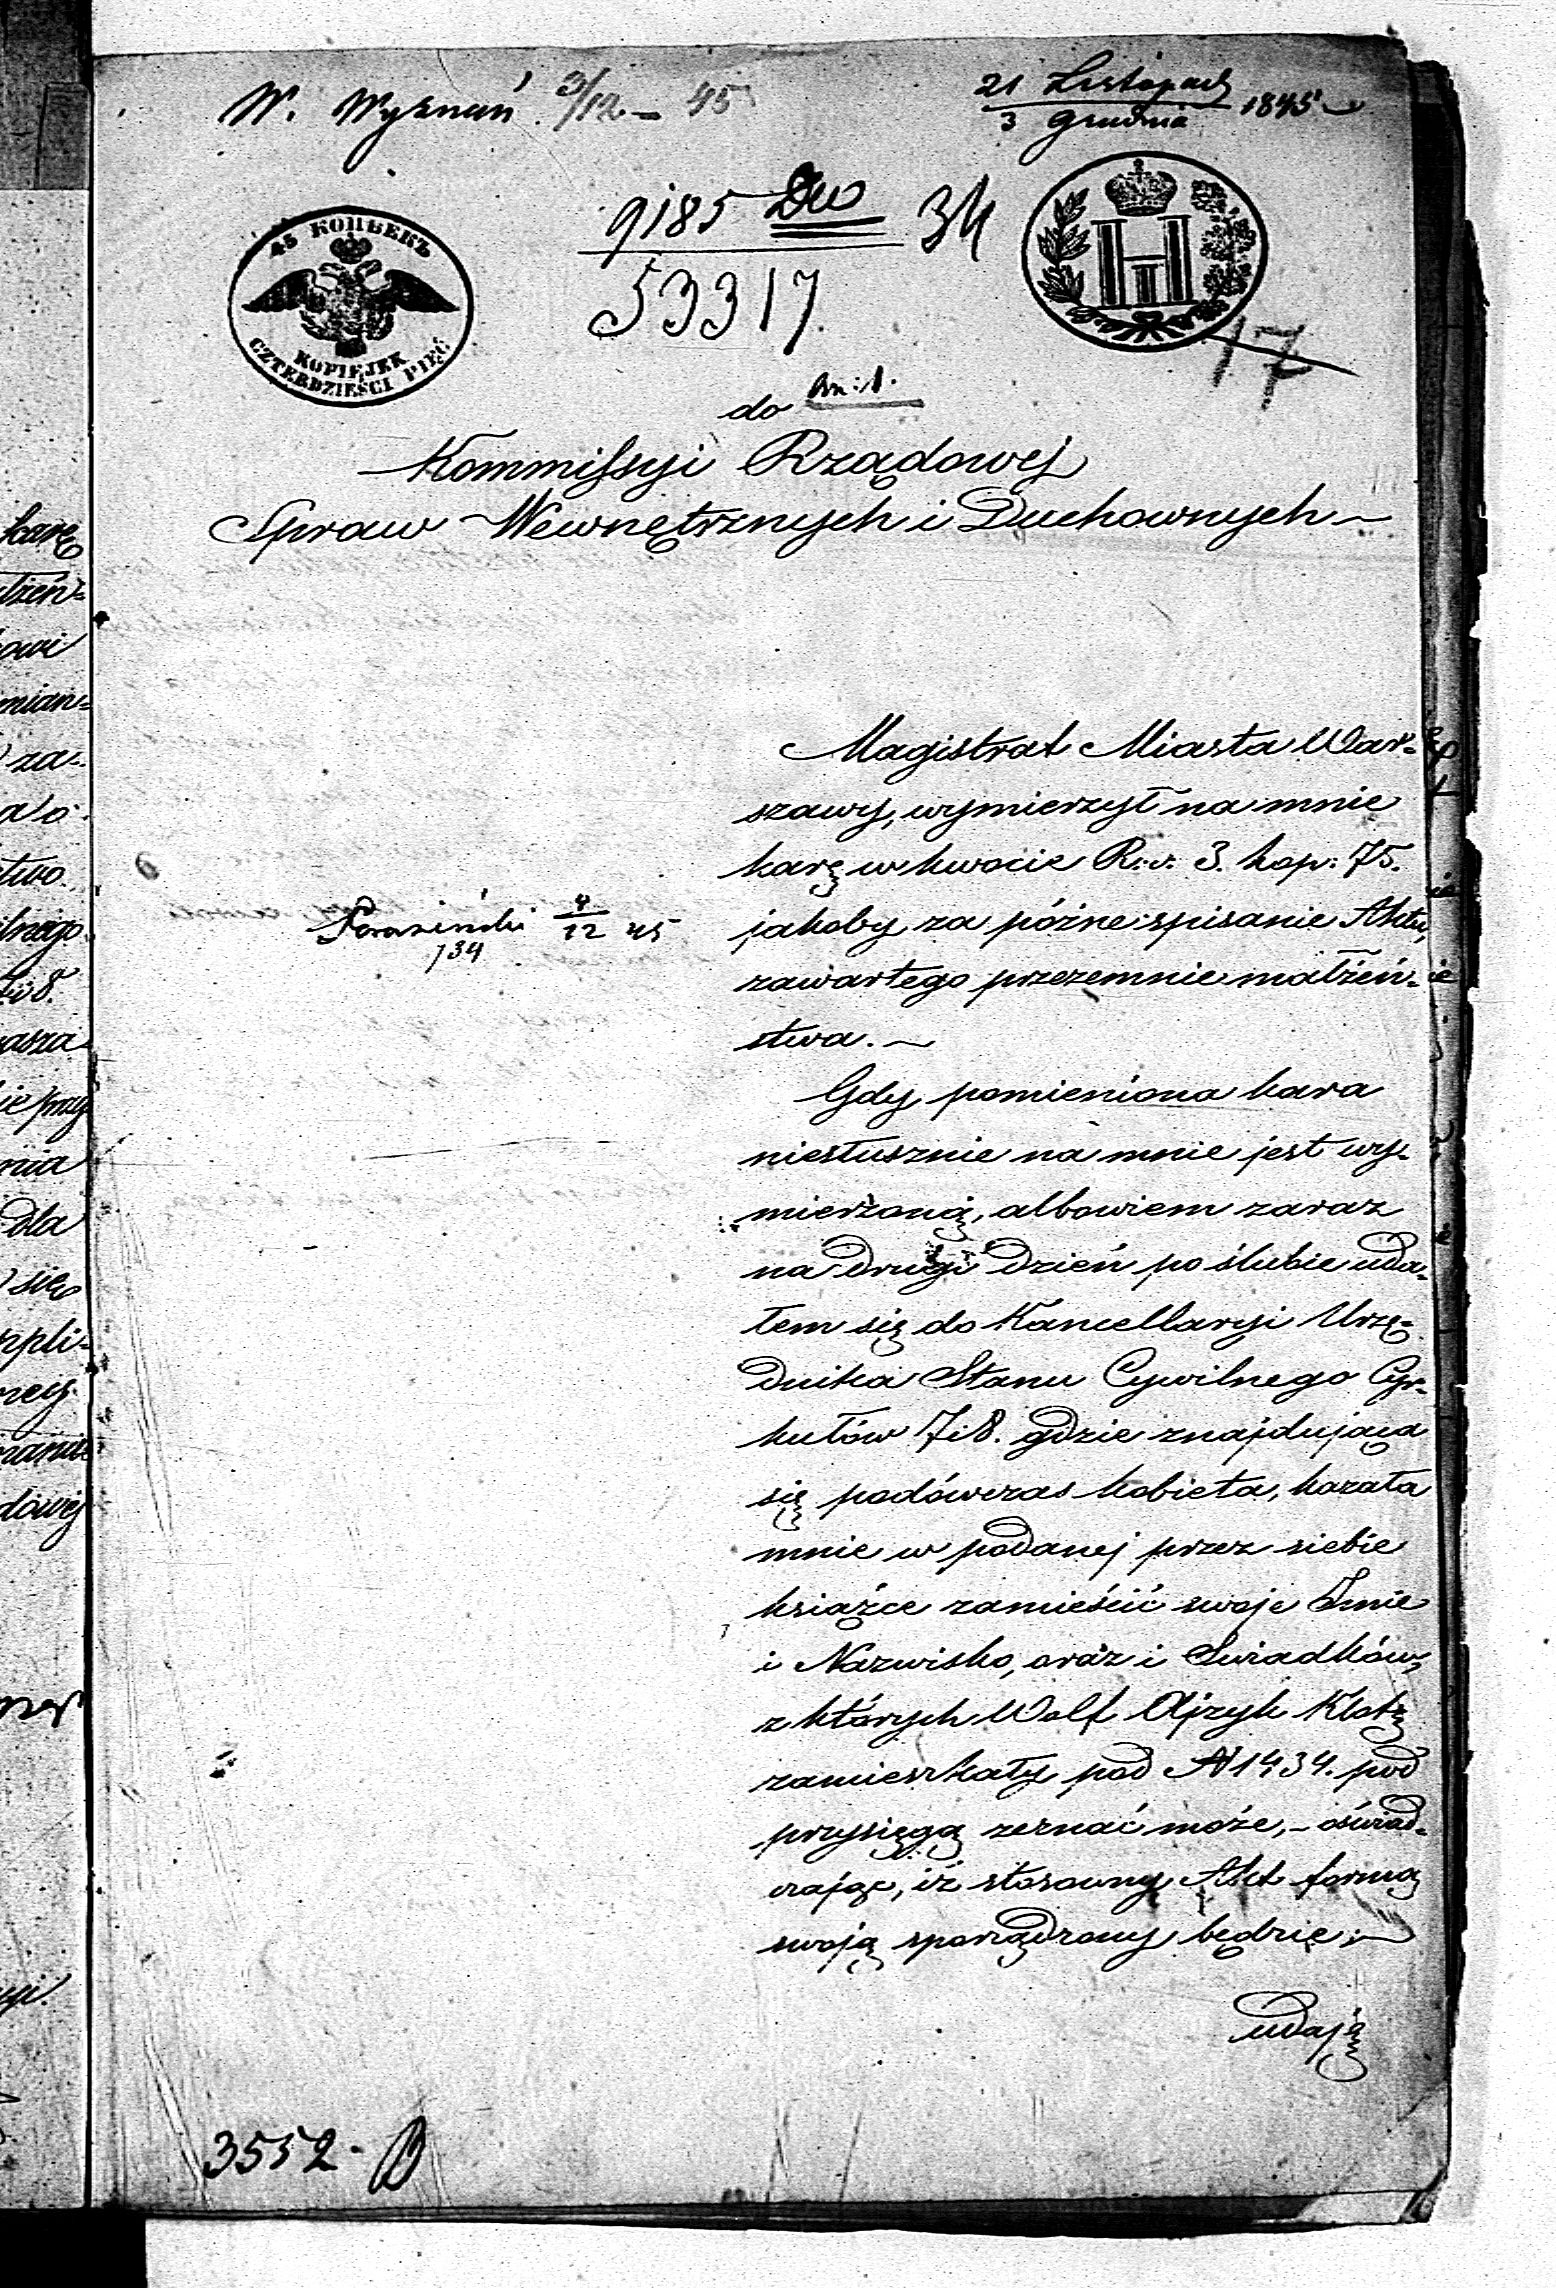 W. Wyznań 3/12 – 45
21 Listopad
3 Grudnia 1845
9185 Dw 34
53317.
45 КОПѢЕКЪ
KOPIEJEK
CZTERDZIEŚCI PIĘĆ
17
an: 1.
do
Kommissyi Rządowej
Spraw Wewnętrznych i Duchownych
Magistrat Miasta War=
szawy, wymierzył na mnie
karę w kwocie R: s: 3. kop: 75.
jakoby za późne spisanie Aktu,
zawartego przezemnie małżeń=
stwa. —
4/12 45
134
Gdy pomieniona kara
niesłusznie na mnie jest wy=
mierzoną, albowiem zaraz
na drugi dzień po ślubie uda=
łem się do Kancellaryi Urzę=
dnika Stanu Cywilnego Cyr=
kułów 7 i 8. gdzie znajdująca
się podówczas kobieta, kazała
mnie w podanej przez siebie
książce zamieścić swoje Imie
i Nazwisko, oraz i Swiadków,
z których Wolf Ajzyk Klotz
zamieszkały pod N 1434. pod
przysięgą zeznać może, – oświad=
czając, iż stosowny Akt formą
swoją sporządzony będzie; —
udają
3552. B
karę
łżeń=
owi
mian=
za=
a o
two.
ilnego
i 8.
asza
ie przy
nia
dla
się
ppli=
ney
rania
dowej